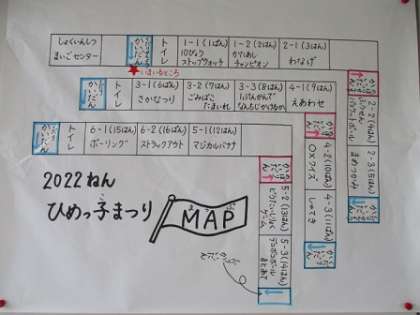 しょくいんしつ
まいごセンター
かいだん
トイレ
1-1(1ばん)
10びょう
ストップウォッチ
1-2(2ばん)
かさいれし
チャンピオン
2-1(3ばん)
わなげ
★いまいるところ
かいだん
トイレ
3-1(6ばん)
さかなつり
3-2(7ばん)
ごみばこ
たまいれ
3-3(8ばん)
4-1(9ばん)
えあわせ
2-3(5ばん)
まめつかみ
かいだん
トイレ
6-1(15ばん)
ボーリング
6-2(16ばん)
ストラックアウト
5-1(12ばん)
マジカルバナナ
4-2(10ばん)
OXクイズ
4-3(11ばん)
しゃてき
5-2(13ばん)
ゲーム
5-3(14ばん)
まとあて
2022ねん
ひめっ子まつり
MAP